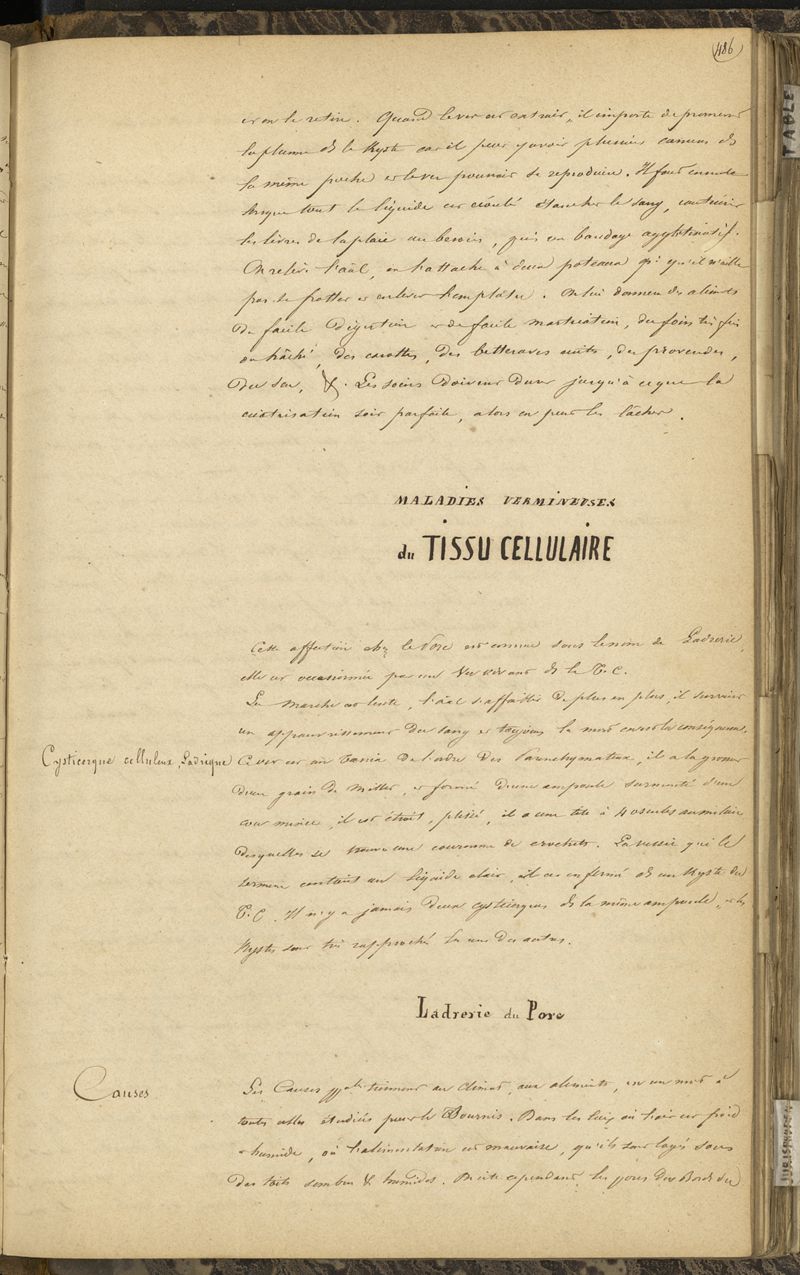 486
et on le retire. Quand le ver est extrait, il importe de promener
la plume ds le Kyste car il peut y avoir plusieurs cænures ds
la même poche et le ver pourrait se reproduire. Il faut ensuite
lorsque tout le liquide est écoulé étancher le sang, cautériser
les lèvres de la plaie au besoin, puis un bandage agglutinatif.
On relève l'aâl, on l'attache à deux poteaux pr qu'il n'aille
pas se frotter et enlever l'emplâtre. On lui donnera des aliments
de facile digestion et de facile mastication, du foin très fin
ou hâché, des carottes, des betteraves cuites, des provendes,
du son, &. Les soins doivent durer jusqu'à ce que la
cicatrisation soit parfaite, alors on peut les lâcher.
MALADIES VERMINEUSES
du TISSU CELLULAIRE
Cette affection chez le Porc est connue sous le nom de Ladrerie,
elle est occasionnée par un Ver vivant ds le T.C.
La marche est lente, l'aâl s'affaiblit de plus en plus, il survient
un appauvrissement du sang et toujours la mort en est la conséquence.
Cysticerque celluleux, Ladrique
Ce ver est un Tænia de l'ordre des Parenchymateux, il a la grosseur
d'un grain de Millet, et formé d'une ampoule surmonté d'un
cou mince, il est étroit, plissé, il a une tête à 4 oscules au milieu
desquelles se trouve une couronne de crochets. La vessie qui le
termine contient un liquide clair, il est enfermé ds un Kyste du
T.C. Il n'y a jamais deux cysticerques ds la même ampoule, et les
Kystes sont très rapprochés les uns des autres.
Ladrerie du Porc
Causes
Les Causes ppales tiennent au climat, aux aliments, en un mot à
toutes celles étudiées pour le Tournis. Dans les lieux où l'air est froid
et humide, où l'alimentation est mauvaise, qu'ils sont logés sous
des toits sombres & humides. On cite cependant, les porcs des Bords du
TABLE
JURISPRUDENCE